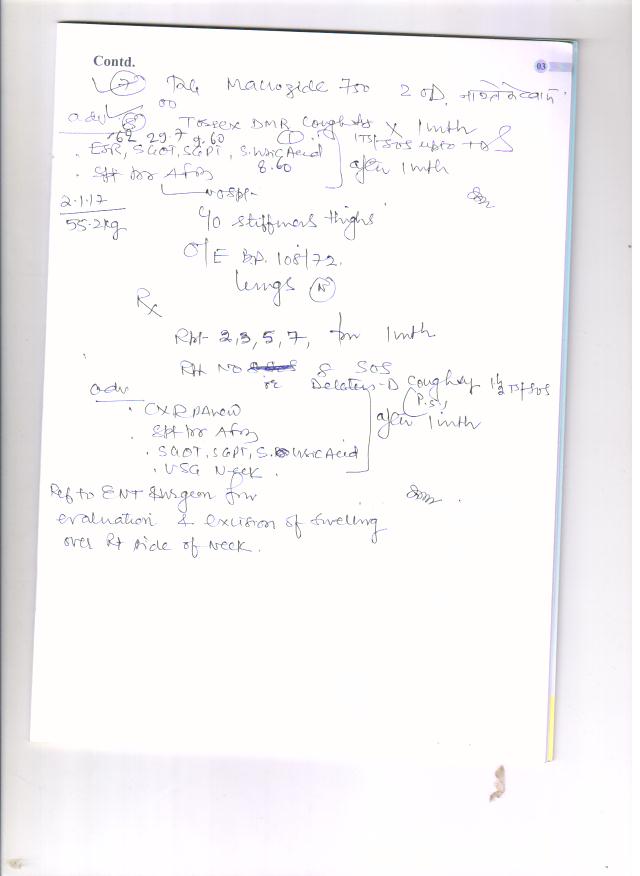 Contd.
03
7 Tab Macrozide 750 2 OD. नाश्ते के बाद
adv 8 Tossex DMR Cough x 1 mth
62 29.7 9.60 1 TSF SOS upto TDS
. ESR, SGOT, SGPT, S. Uric Acid
8.60 after 1 mth
. Spt for Afb
No Spt
2.1.17
55.2kg C/o stiffness thighs
O/E BP. 108/72.
lungs N
Rx
Rpt- 2, 3, 5, 7, for 1 mth
Rpt No 8 SOS
or Deletus-D Cough 1½ TSF SOS
adv (P.S.)
. CXR PA view after 1 mth
. Spt for Afb
. SGOT, SGPT, S. Uric Acid
. USG Neck.
Ref to ENT Surgeon for
evaluation & excision of swelling
over Rt side of neck.